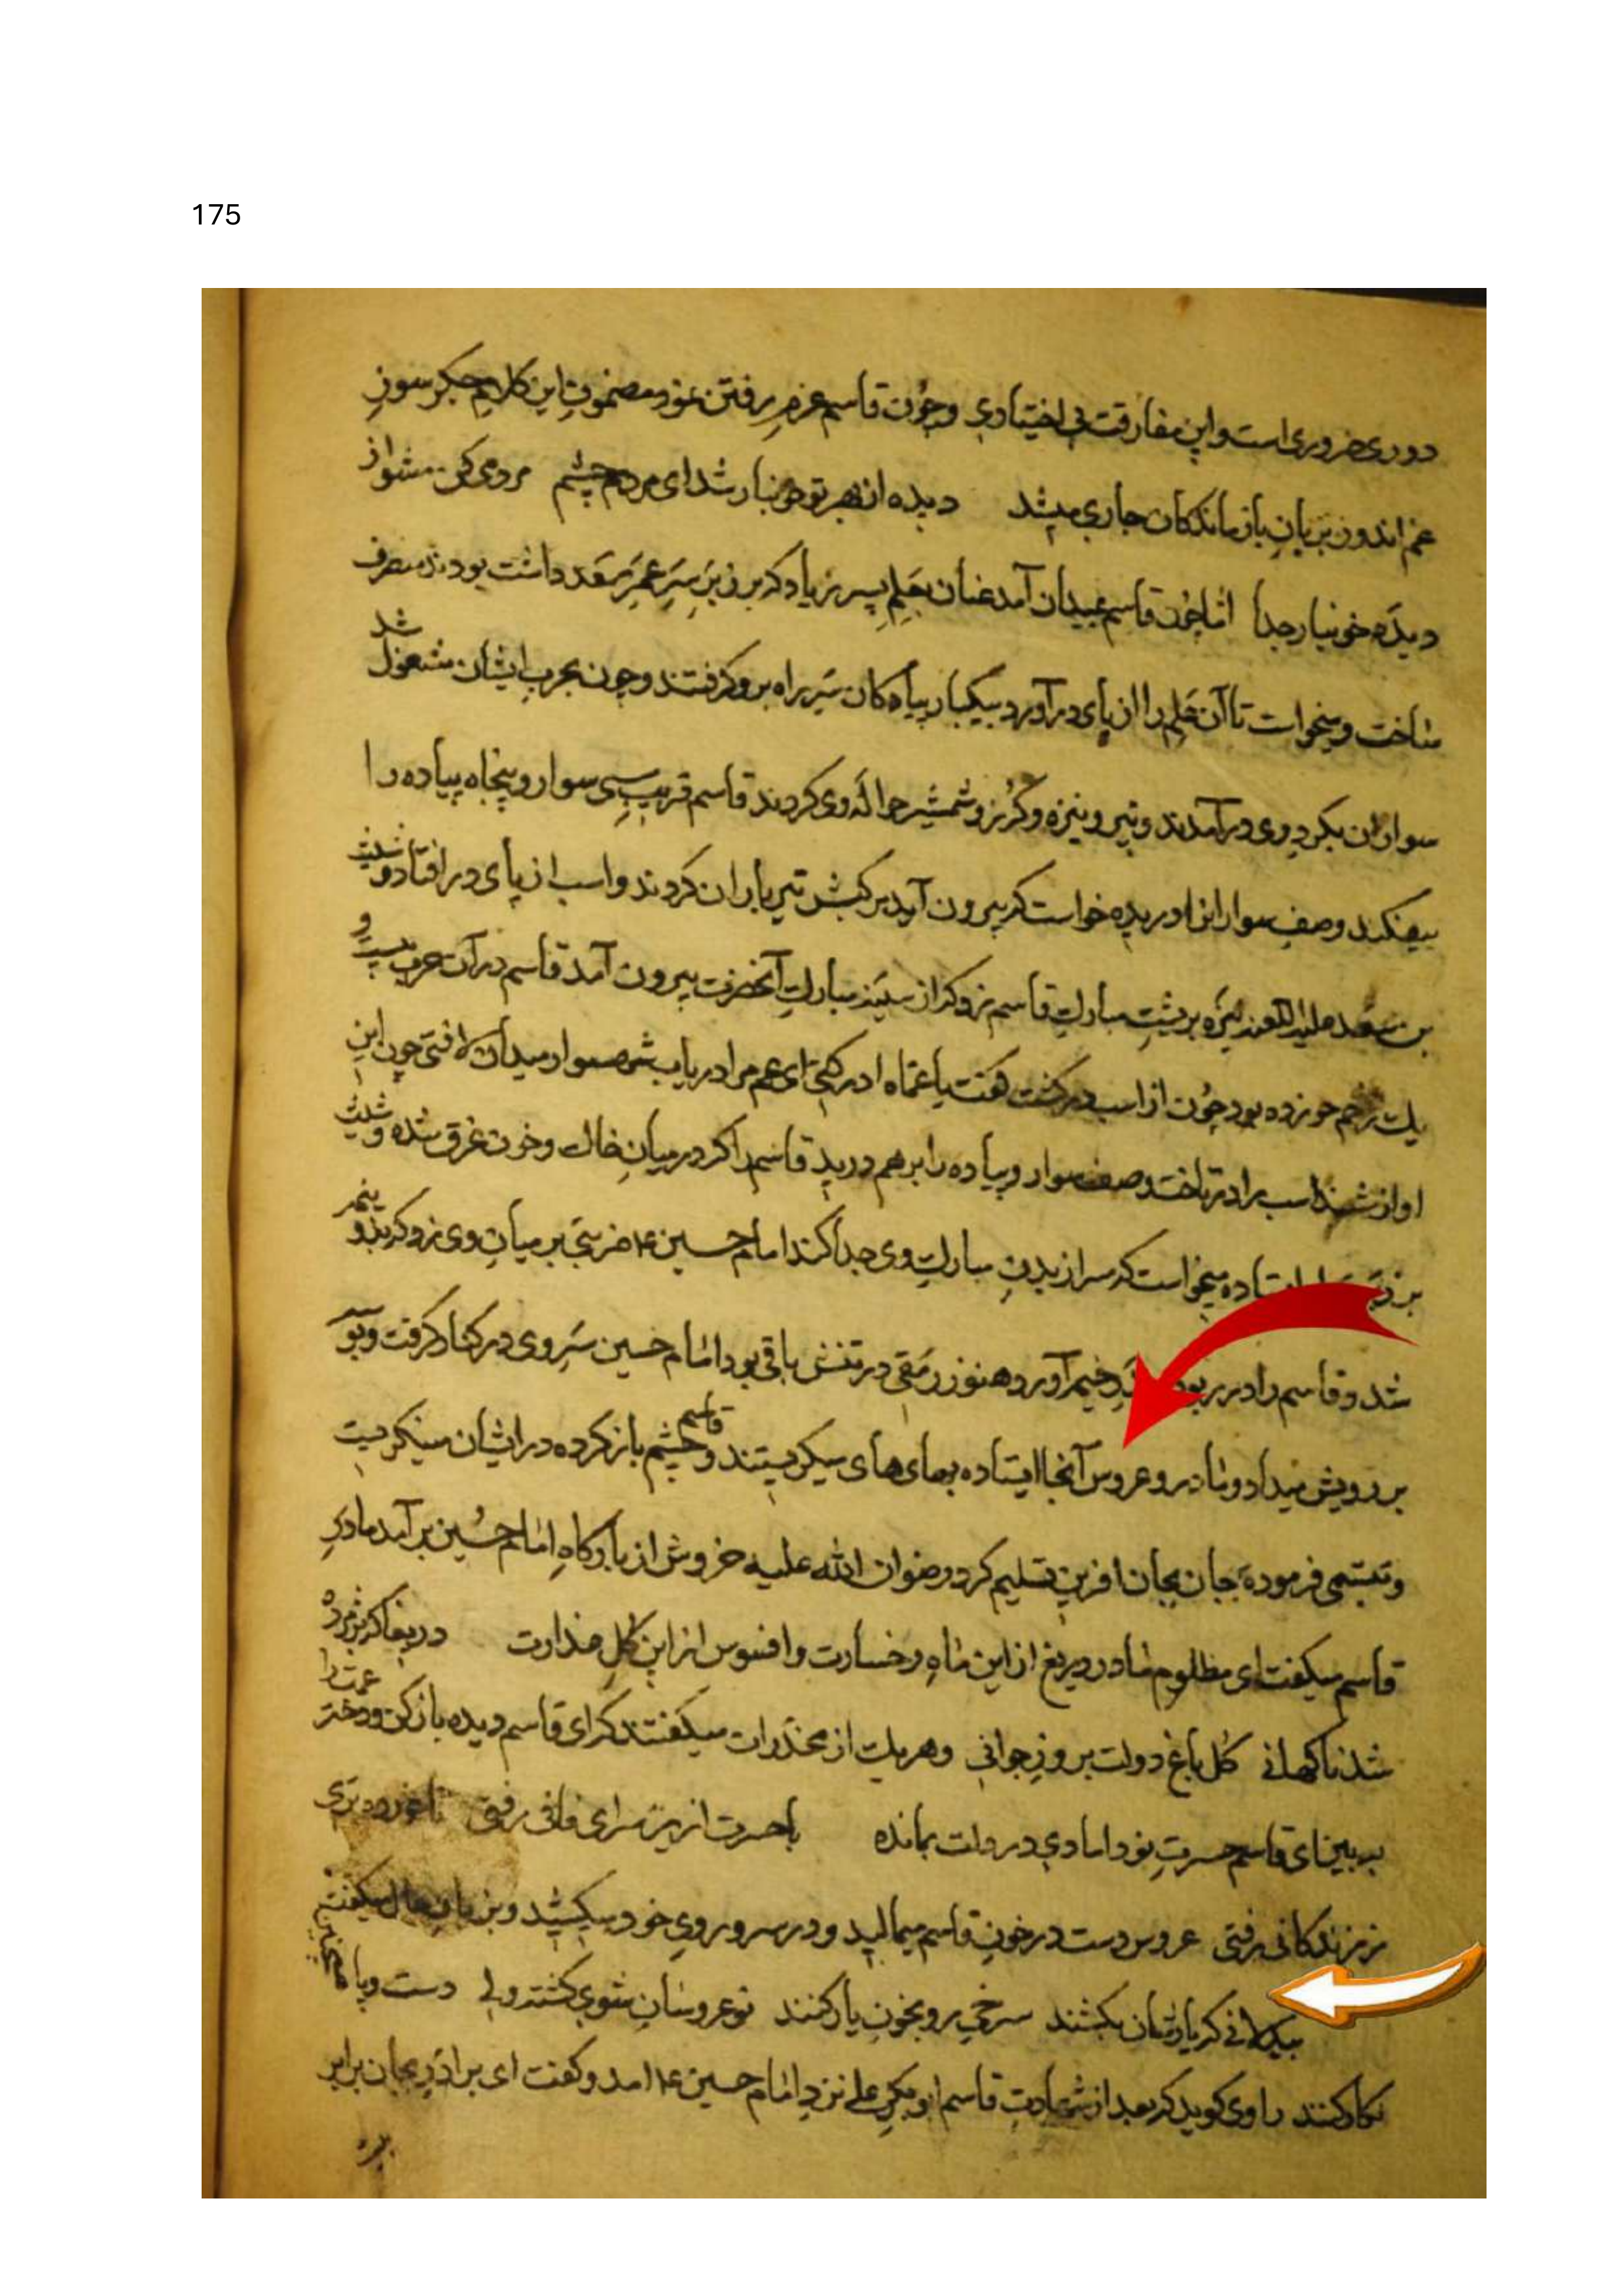 175
دوری ضروری است و این مفارقت بی اختیاری و چون قاسم عزم رفتن نمود مضمون این کلام جگر سوز
غم اندوز بر زبان بازماندکان جاری میشد دیده از بهر تو خونبار شد ای مردم چشم مردمی کن مشو از
دیده خونبار جدا امّا چون قاسم بمیدان آمد عنان بعلم پسر زیاد که بر زبر سر عمر سعد داشت بودند منصرف
ساخت و میخواست تا آن علم را از پای در آورد بیکبار پیادکان سر راه برو کرفتند و چون بحرب ایشان مشغول شد
سواران بکرد وی درآمدند و تیر و نیزه و کرز و شمشیر حواله وی کردند قاسم قریب سی سوار و پنجاه پیاده را
بیفکند و صف سوارانرا دریده خواست که بیرون آید مرکبش تیر باران کردند و اسب از پای در افتاد و شیث
بن سعد علیه اللعنه نیزه بر پشت مبارک قاسم زد که از سینه مبارک آنحضرت بیرون آمد قاسم در آن حرب بیست و
یک زخم خورده بود چون از اسب در کشت کفت یا عماه ادرکنی ای عم مرا دریاب شهسوار میدان لافتی چون این
اواز شنید اسب را در تاخت و صف سوار و پیاده را برهم درید قاسم را که در میان خاک و خون غرق شده و شیث
بر زبر ایستاده میخواست که سر از بدن مبارک وی جدا کند امام حسین ع ضربتی بر میان وی زد که بدو نیم
شد و قاسم را در ربود در خیمه آورد هنوز رمقی در تنش باقی بود امام حسین سر وی در کنار کرفت و بوسه
بر رویش میداد و مادر و عروس آنجا ایستاده بهای های میکریستند و قاسم چشم باز کرده در ایشان مینکریست
و تبسمی فرموده جان بجان افرین تسلیم کرد رضوان الله علیه خروش از بارگاه امام حسین بر آمد مادر
قاسم میکفت ای مظلوم مادر دریغ از این ماه رخسارت و افسوس از این کل عذارت دریغا که پژمرده
شد ناکهانی کل باغ دولت بروز جوانی و هر یک از مخدرات میکفتند که ای قاسم دیده باز کن و دختر عمت را
ببین ای قاسم حسرت نو دامادی در دلت بمانده با حسرت ازین سرای فانی رفتی ناخورده بری
ز زندکانی رفتی عروس دست در خون قاسم میمالید و در سر و روی خود میکشید و بزبان حال میکفت
بیدلانی که یارشان بکشند سرخی رو بخون یار کنند نو عروسان شوی کشته ولی دست و پا
نکار کنند راوی کوید که بعد از شهادت قاسم ابو بکر علی نزد امام حسین ع امد و کفت ای برادر بجان برابر